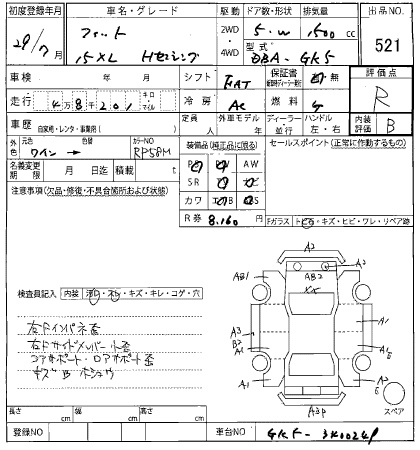 初度登録年月 車名・グレード 駆動 ドア数・形状 排気量 出品NO
29/7月 フィット 2WD 5.W 1500cc 521
15XL Hセンシング 4WD 型式 DBA-GK5
車検 年 月 シフト FAT 保証書 有 無 評価点
走行 4万8千201 キロ マイル 冷房 AC 燃料 G R
車歴 自家用・レンタ・事業用( ) 定員 人 外車モデル 年 ディーラー 並行 ハンドル 左・右 内装評価 B
外色 元色 ワイン → 色替 カラーNO RP58M 装備品(純正品に限る) セールスポイント(正常に作動するもの)
名義変更期限 月 日迄 積載 t PS PW AW
注意事項(欠品・修復・不具合箇所および状態) SR ナビ
カワ エアB ABS
R券 8,160円 Fガラス トビ石・キズ・ヒビ・ワレ・リペア跡
検査員記入 内装 ヨゴレ・スレ・キズ・キレ・コゲ・穴
右Fインパネ歪
右Fサイドメンバー小歪
コアサポート・ロアサポート歪
キズB ホシュウ
A2
A2
AB1 AB2
XX
A3 B2 A1 A1
A1 A1 A1
A3P スペア
長さ cm 幅 cm 高さ cm
登録NO 車台NO GK5-